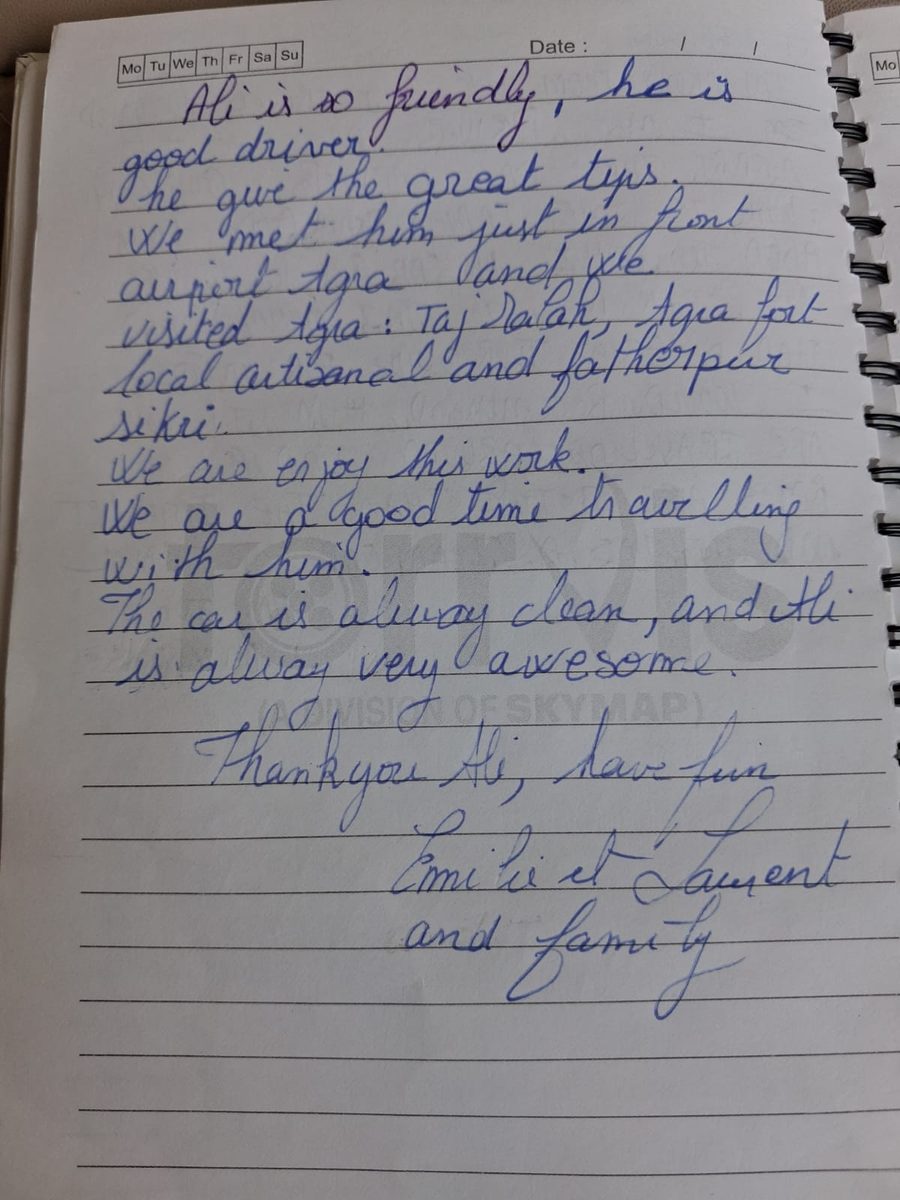 Mo Tu We Th Fr Sa Su
Date : / /
Mo
Ali is so friendly, he is
good driver.
he give the great tips.
We met him just in front
airport Agra and we
visited Agra : Taj Malah, Agra fort
local artisanal and fatherpur
sikri.
We are enjoy this work.
We are a good time travelling
with him.
The car is alway clean, and Ali
is alway very awesome.
(A DIVISION OF SKYMAP)
Thank you Ali, have fun
Emilie et Laurent
and family